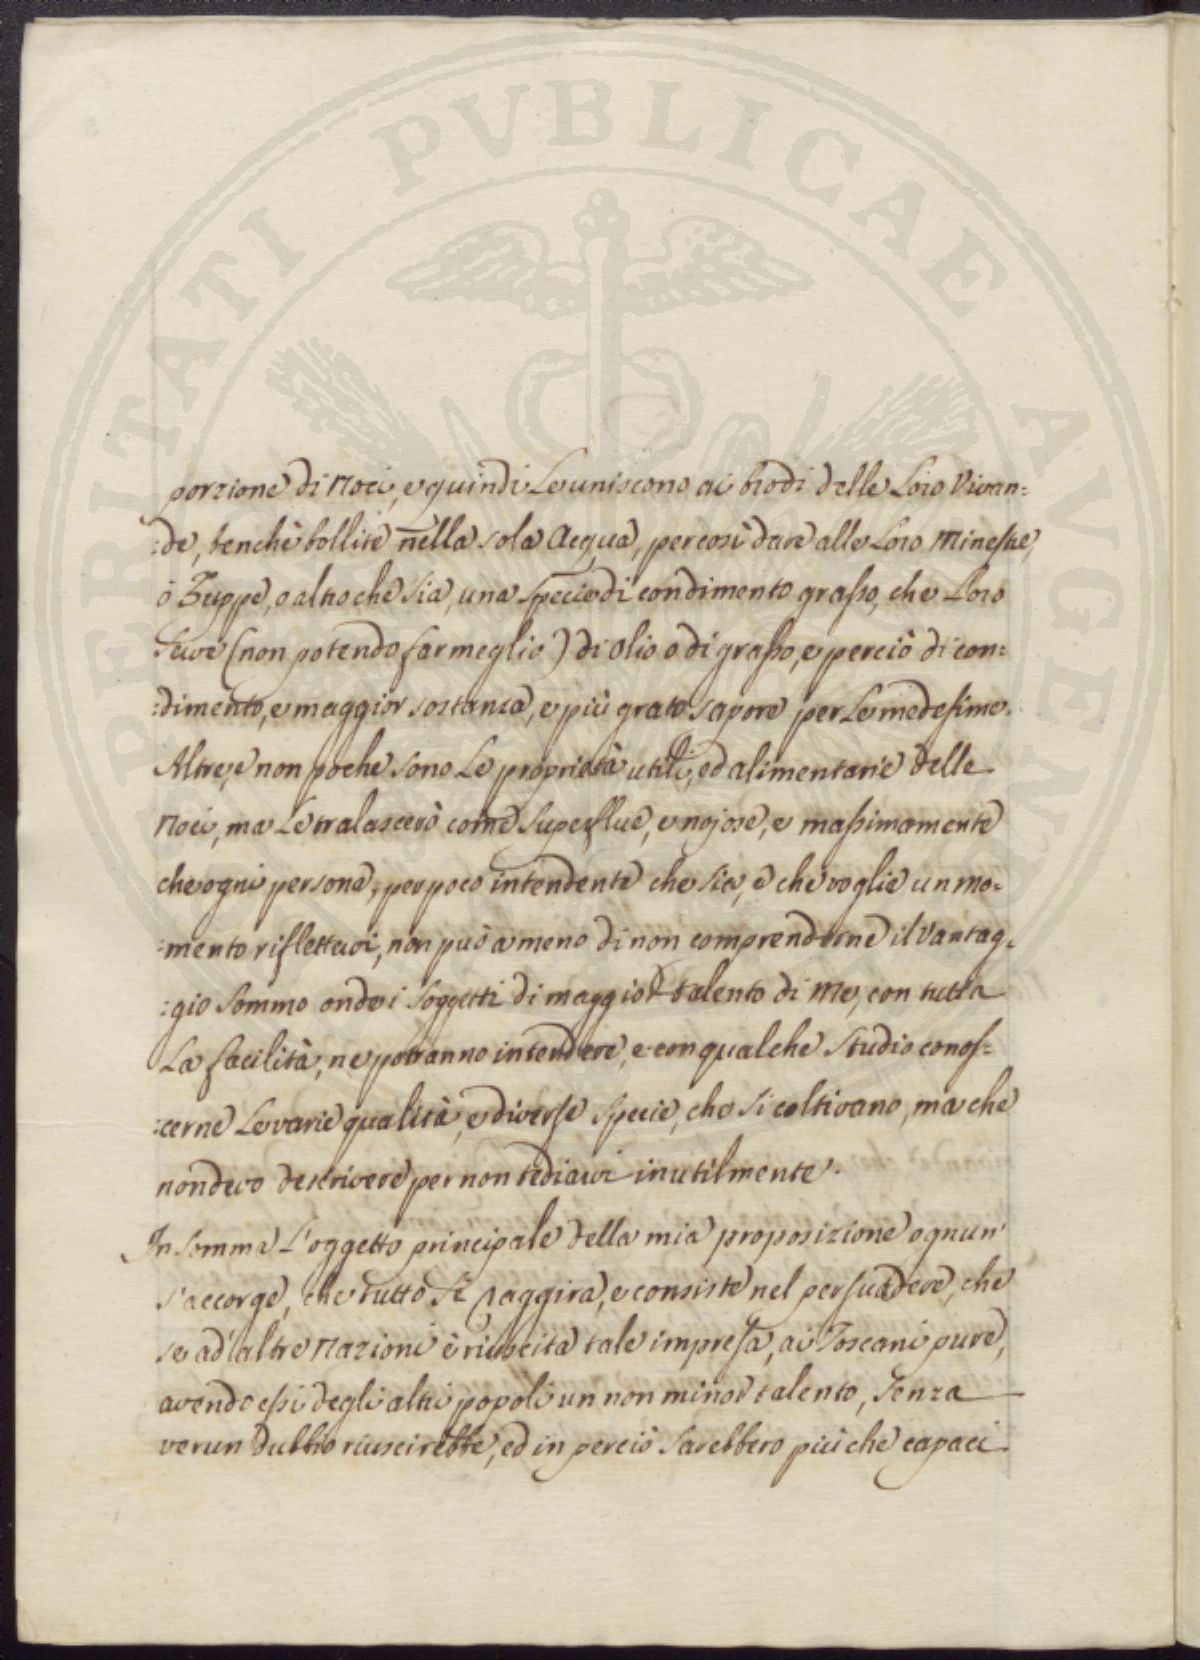 PROSPERITATI PVBLICAE AVGENDAE
porzione di Noci, e quindi Le uniscono ai brodi delle Loro Vivan=
:de, benchè bollite nella sola Acqua, per così dare alle Loro Minestre,
ò Zuppe, o altro che Sia, una Specie di condimento grasso, che Loro
Serve (non potendo far meglio) di Olio o di grasso, e perciò di con=
:dimento, e maggior sostanza, e più grato sapore per Le medesime.
Altre, e non poche Sono Le proprietà utili, ed alimentarie delle
Noci, ma Le tralascerò come Superflue, e nojose, e massimamente
che ogni persona, per poco intendente che Sia, e che voglia un mo=
:mento riflettervi, non può a meno di non comprenderne il Vantag=
:gio Sommo onde i Soggetti di maggior talento di Me, con tutta
La facilità, ne potranno intendere, e con qualche Studio conos=
:cerne Le varie qualità, e diverse Specie, che Si coltivano, ma che
non devo descrivere per non tediarvi inutilmente.
In Somma L'oggetto principale della mia proposizione ognun'
s'accorge, che tutto Si raggira, e consiste nel persuadere, che
se ad' altre Nazioni è riuscita tale impresa, ai Toscani pure,
avendo essi degli altri popoli un non minor talento, Senza
verun dubbio riuscirebbe, ed in perciò Sarebbero più che capaci